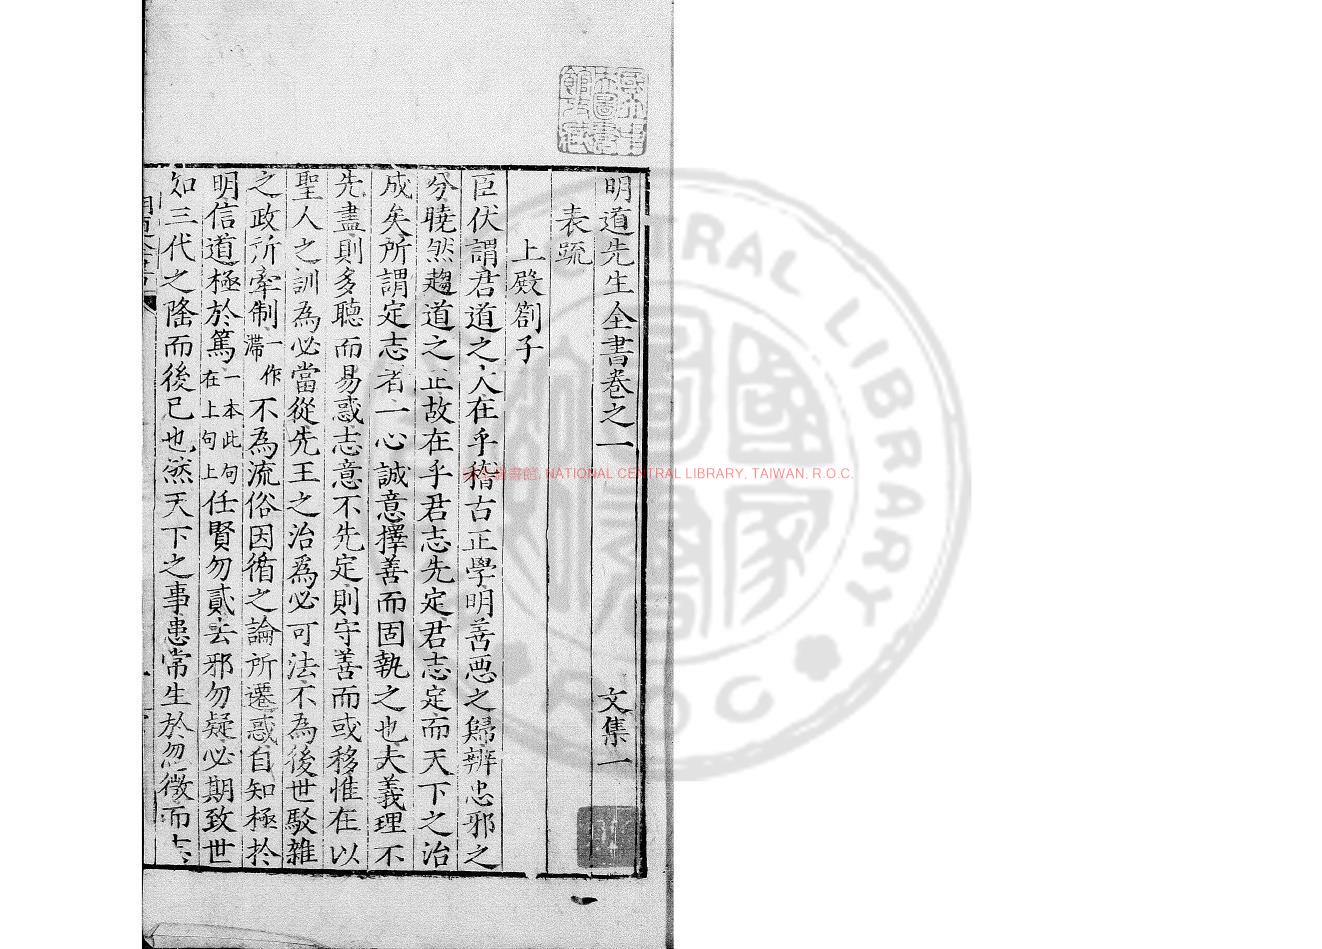 明道先生全書卷之一 文集一
表疏
上殿劄子
臣伏謂君道之大在乎稽古正學明善惡之歸辨忠邪之
分曉然趨道之正故在乎君志先定君志定而天下之治
成矣所謂定志者一心誠意擇善而固執之也夫義理不
先盡則多聽而易惑志意不先定則守善而或移惟在以
聖人之訓為必當從先王之治爲必可法不為後世駁雜
之政所牽制一作滯不為流俗因循之論所遷惑自知極於
明信道極於篤一本此句在上句上任賢勿貳去邪勿疑必期致世
如三代之隆而後已也然天下之事患常生於忽微而志
國立中央圖書館收藏
CENTRAL LIBRARY R O C
NATIONAL CENTRAL LIBRARY, TAIWAN, R.O.C.